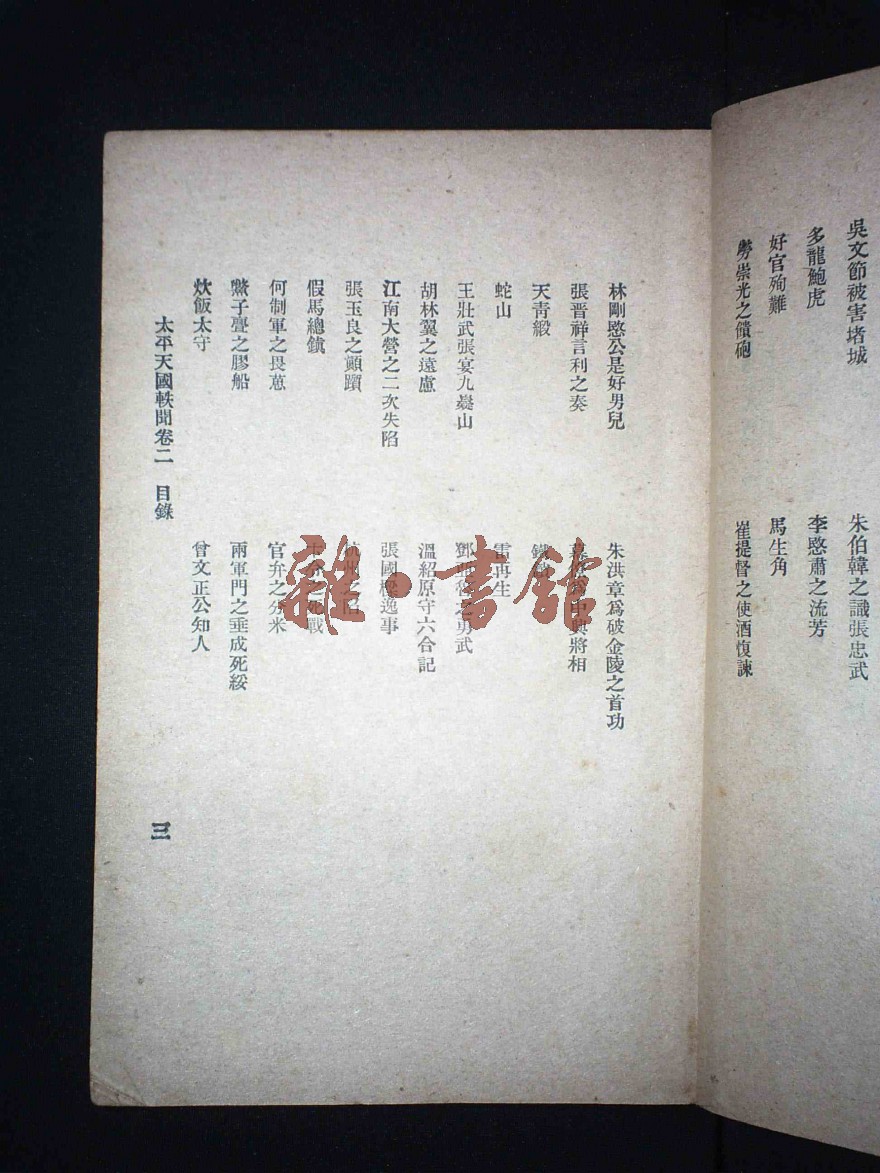 吳文節被害堵城
朱伯韓之識張忠武
多龍鮑虎
李愍肅之流芳
好官殉難
馬生角
勞崇光之饋砲
崔提督之使酒愎諫
林剛愍公是好男兒
朱洪章爲破金陵之首功
張晋祥言利之奏
爲中興將相
天青緞
鐵
蛇山
雷再生
王壯武張宴九嶷山
鄧 之勇武
胡林翼之遠慮
溫紹原守六合記
江南大營之二次失陷
張國樑逸事
張玉良之顚躓
杭州之陷
假馬總鎮
死戰
何制軍之畏葸
官弁之分米
鱉子亹之膠船
兩軍門之垂成死綏
炊飯太守
曾文正公知人
太平天國軼聞卷二 目錄
三
雜·書館